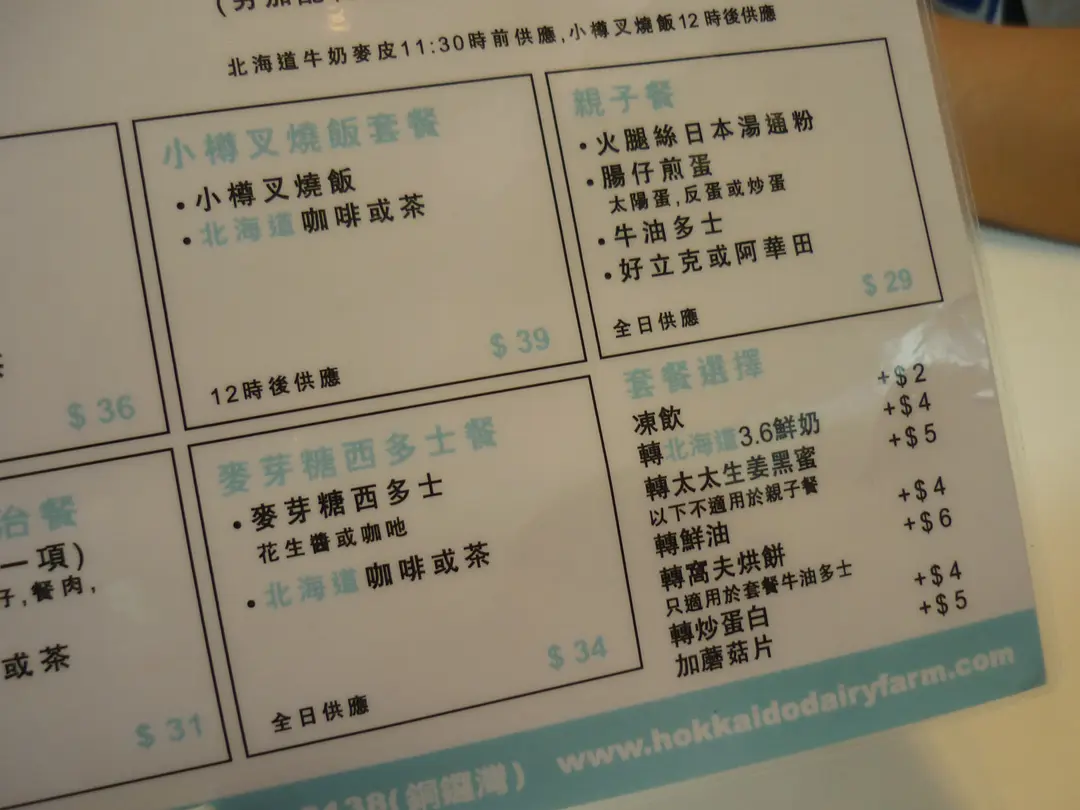 北海道牛奶麥皮11:30時前供應,小樽叉燒飯12時後供應
$ 36
小樽叉燒飯套餐
•小樽叉燒飯
•北海道咖啡或茶
$ 39
12時後供應
親子餐
•火腿絲日本湯通粉
•腸仔煎蛋
太陽蛋,反蛋或炒蛋
•牛油多士
•好立克或阿華田
$ 29
全日供應
治餐
一項)
子,餐肉,
或茶
$ 31
麥芽糖西多士餐
•麥芽糖西多士
花生醬或咖吔
•北海道咖啡或茶
$ 34
全日供應
套餐選擇
凍飲 +$2
轉北海道3.6鮮奶 +$4
轉太太生姜黑蜜 +$5
以下不適用於親子餐
轉鮮油 +$4
轉窩夫烘餅 +$6
只適用於套餐牛油多士
轉炒蛋白 +$4
加蘑菇片 +$5
(銅鑼灣) www.hokkaidodairyfarm.com